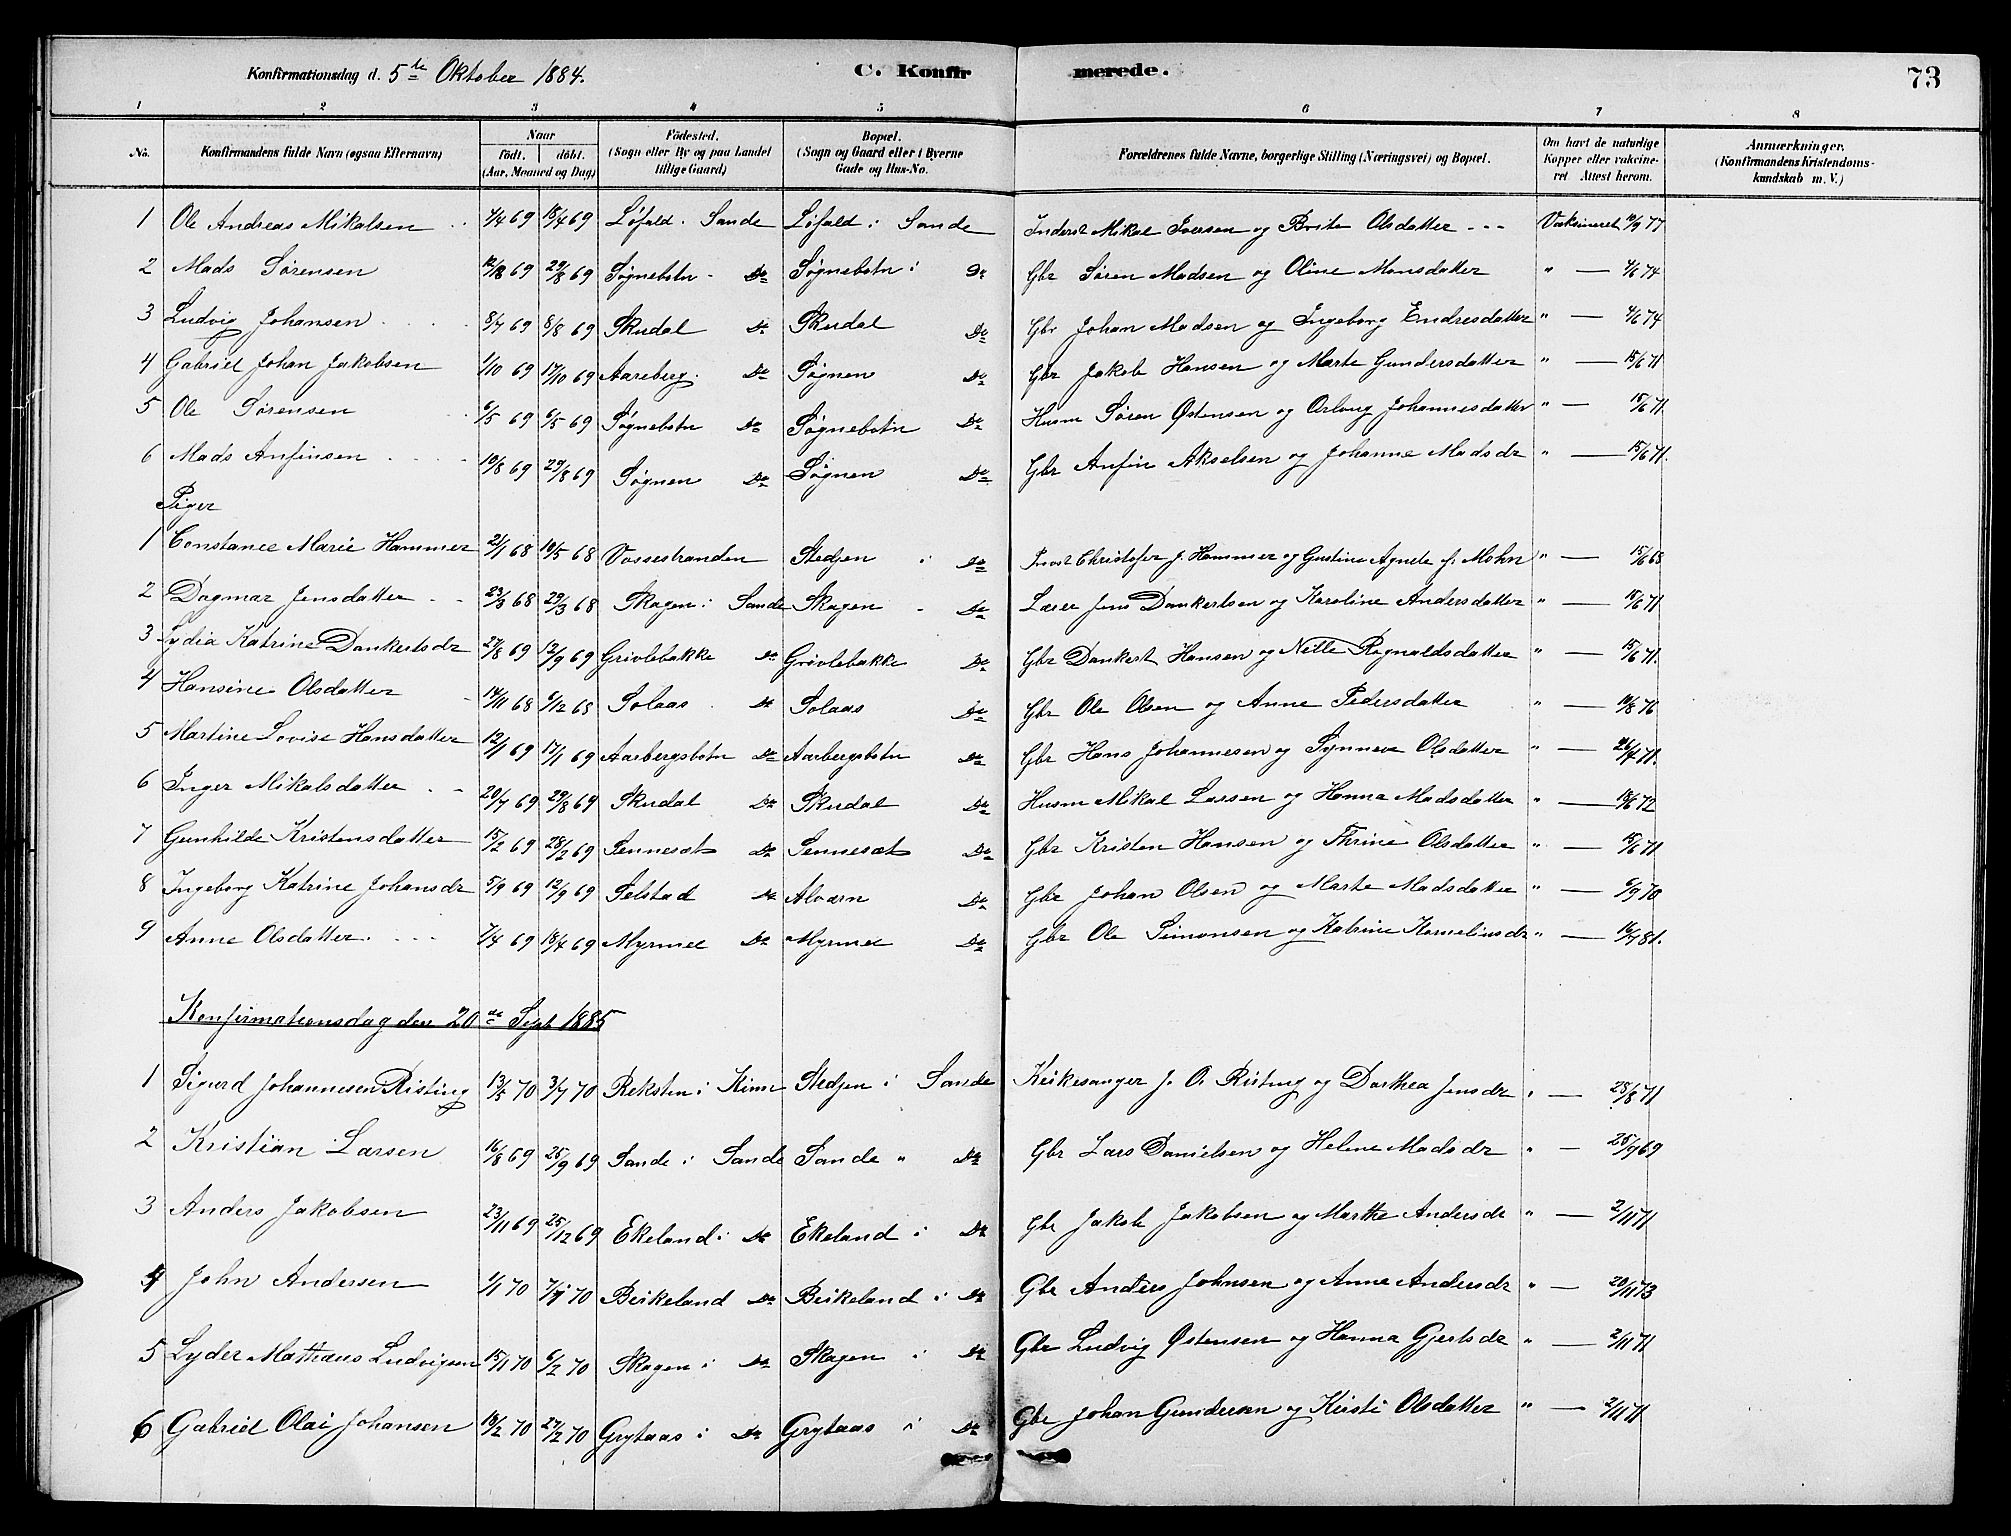 Konfirmationsdag d. 5te Oktober 1884. C. Konfirmerede. 73
1 2 3 4 5 6 7 8
No. Konfirmandens fulde Navn (ogsaa Efternavn) Naar født. døbt. (Aar, Maaned og Dag) Fødested. (Sogn eller By og paa Landet tillige Gaard) Bopæl. (Sogn og Gaard eller i Byerne Gade og Hus-No. Forældrenes fulde Navne, borgerlige Stilling (Næringsvei) og Bopæl. Om havt de naturlige Kopper eller vakcineret Attest herom. Anmærkninger. (Konfirmandens Kristendomskundskab m. V.)
1 Ole Andreas Mikalsen 4/4 69 18/4 69 Løfald i Sande Løfald i Sande Inderst Mikal Iversen og Brita Olsdatter Vaksineret 10/9 77
2 Mads Sørensen 69 29/8 69 Søgnebotn Do Søgnebotn i Do Gbr Søren Madsen og Oline Monsdatter " — 4/6 74
3 Ludvig Johansen 8/7 69 8/8 69 Skudal Do Skudal Do Gbr Johan Madsen og Ingeborg Endresdatter " — 4/6 74
4 Gabriel Johan Jakobsen 1/10 69 17/10 69 Aareberg Do Søgnen Do Gbr Jakob Hansen og Marte Gundersdatter " — 15/6 71
5 Ole Sørensen 6/5 69 6/5 69 Søgnebotn Do Søgnebotn Do Husm Søren Østensen og Johannesdatter " — 15/6 71.
6 Mads Anfinsen 19/8 69 29/8 69 Søgnen Do Søgnen Do Gbr Anfin Akselsen og Johanne Madsdr " — 15/6 71.
Piger
1 Constance Marie Hammer 21/1 68 19/5 68 Vossestranden Stedjen i Do Provst Christofer J. Hammer og Gustine Agneta f. Mohn " — 15/6 68
2 Dagmar Jensdatter 23/3 68 29/3 68 Skagen i Sande Skagen Do Lærer Jens Dankertsen og Karoline Andersdatter " — 15/6 71
3 Lydia Katrine Dankertsdr 27/8 69 12/9 69 Grivlebakke Do Grivlebakke Do Gbr Dankert Hansen og Nille Rognaldsdatter " — 15/6 71.
4 Hansine Olsdatter 14/11 68 6/12 68 Solaas Do Solaas Do Gbr Ole Olsen og Anne Pedersdatter " — 19/8 76
5 Martine Lovise Hansdatter 12/1 69 17/1 69 Aarbergsbotn Do Aarbergsbotn Do Gbr Hans Johannesen og Synneve Olsdatter " — 26/4 71.
6 Inger Mikalsdatter 20/7 69 29/8 69 Skudal Do Skudal Do Husm Mikal Larsen og Hanna Madsdatter " — 18/6 72
7 Gunhilde Kristensdatter 15/2 69 28/2 69 Sennesæt Do Sennesæt Do Gbr Kristen Hansen og Thrine Olsdatter " — 15/6 71
8 Ingeborg Katrine Johansdr 5/9 69 12/9 69 Selstad Do Alværn Do Gbr Johan Olsen og Marte Madsdatter " — 6/9 70
9 Anne Olsdatter 7/4 69 18/4 69 Myrmel Do Myrmel Do Gbr Ole Simonsen og Katrine Korneliusdr " — 14/7 81.
Konfirmationsdag den 20de Sept 1885
1 Sigurd Johannesen Risting 13/5 70 3/7 70 Reksten i Kinn Stedjen i Sande Kirkesanger J. O. Risting og Dorthea Jensdr " — 28/8 71
2 Kristian Larsen 16/8 69 26/9 69 Sande i Sande Sande " Do Gbr Lars Danielsen og Helene Madsdr " — 25/9 69
3 Anders Jakobsen 23/11 69 26/12 69 Ekeland i Do Ekeland i Do Gbr Jakob Jakobsen og Marthe Andersdr " — 2/11 71
4 John Andersen 1/1 70 70 Birkeland Do Birkeland i Do Gbr Anders Johnsen og Anne Andersdr " — 20/11 73
5 Lyder Mathæus Ludvigsen 15/1 70 6/2 70 Skagen i Do Skagen i Do Gbr Ludvig Østensen og Hanna Gjertsdr " — 2/11 71
6 Gabriel Olai Johansen 13/2 70 27/2 70 Grytaas i Do Grytaas i Do Gbr Johan Gundersen og Kirsti Olsdatter " — 2/11 71